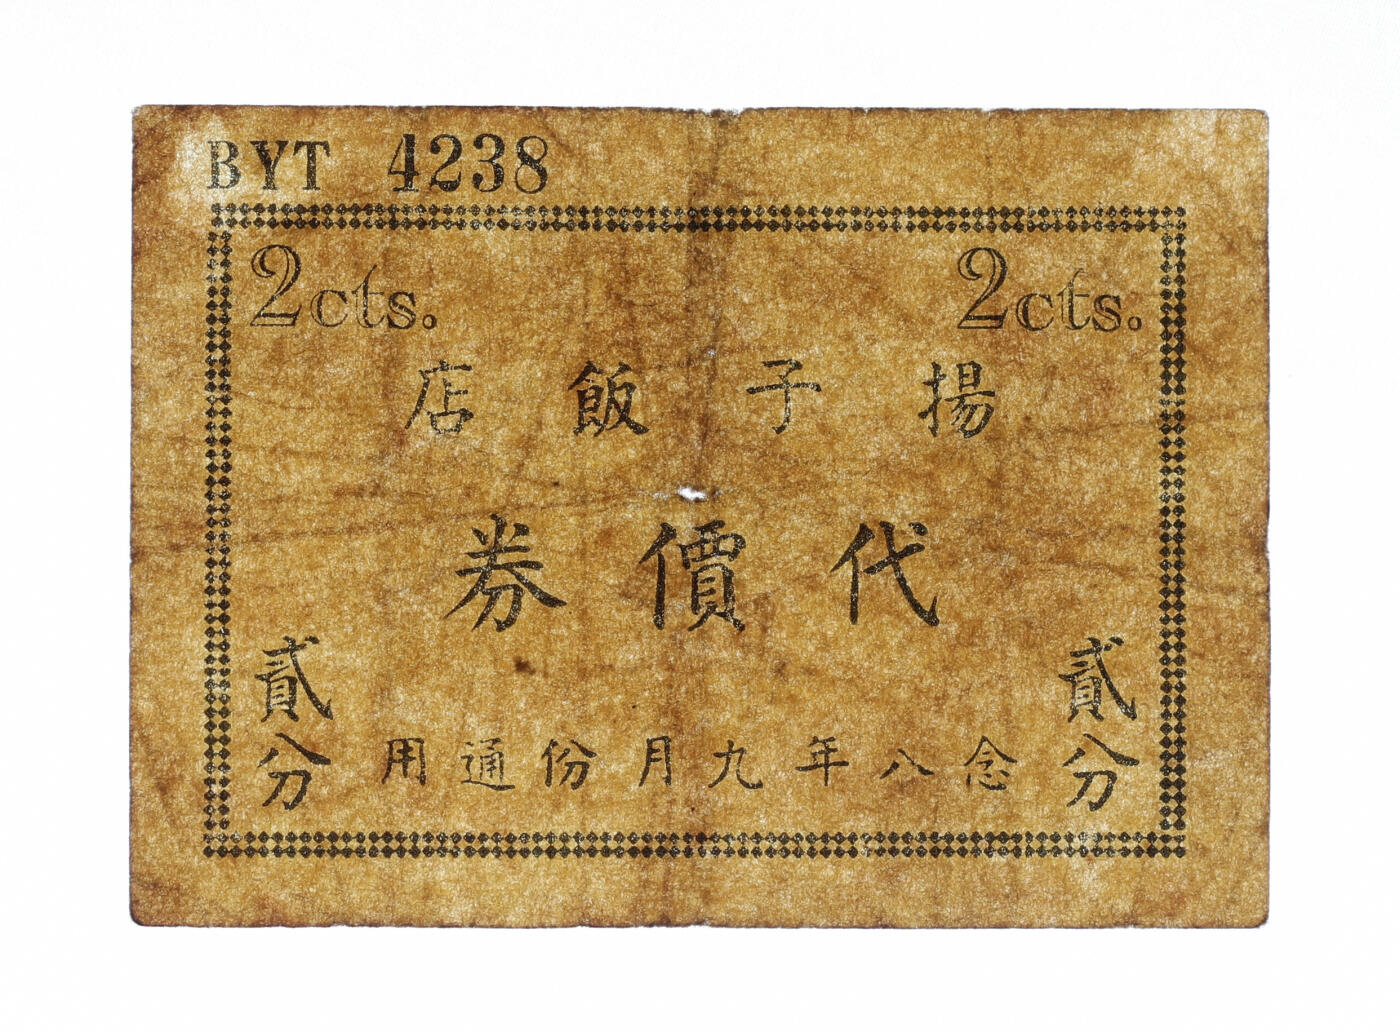 BYT 4238
2cts. 2cts.
揚子飯店
代價券
貳分
念八年九月份通用
貳分